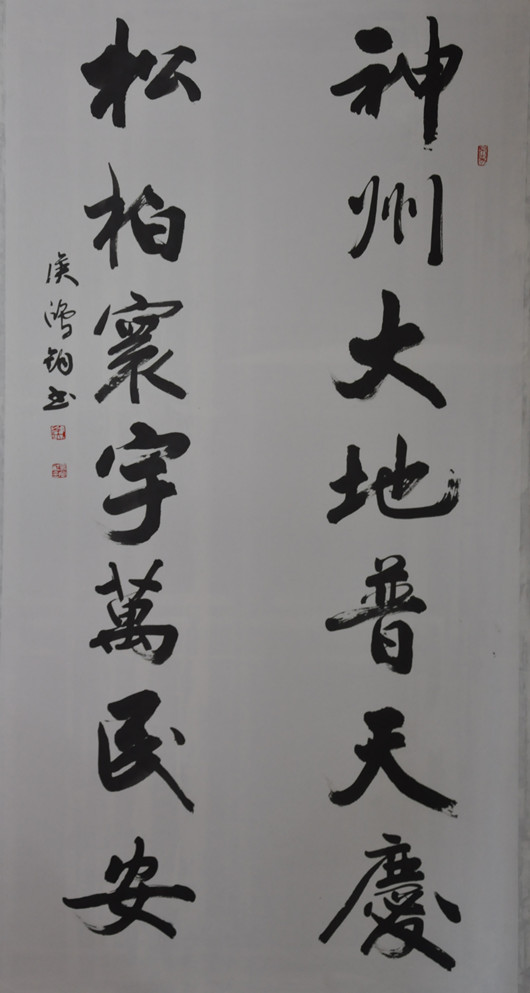 神州大地普天慶
松柏寰宇萬民安
侯鴻鈞书